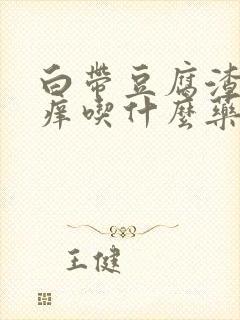 白带豆腐渣
痒喫什麽藥
王健